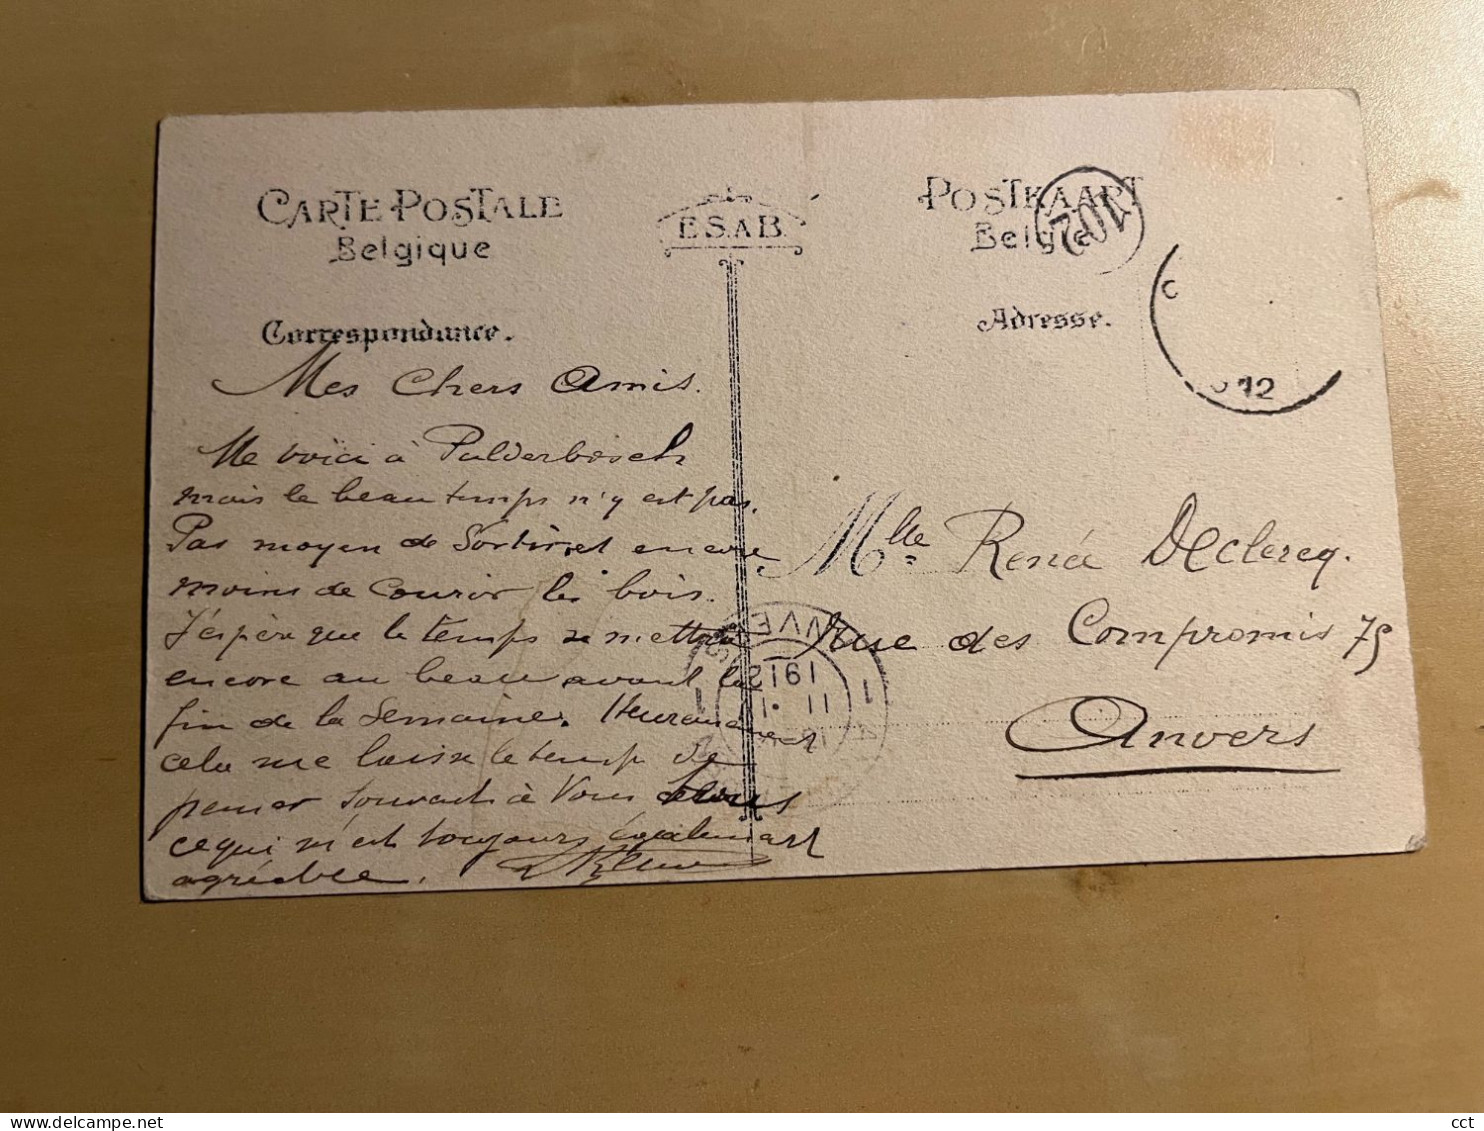 CARTE POSTALE
Belgique
E.S.A.B.
POSTKAART
België
102
C
12
Correspondance.
Adresse.
Mes Chers Amis.
Me voici à Pulderbosch
mais le beau temps n'y est pas.
Pas moyen de Sortir, et encore
moins de courir les bois.
J'espère que le temps se mettra
encore au beau avant la
fin de la Semaine. Heureusement
cela me laisse le temps de
penser souvent à Vous
ce qui m'est toujours également
agréable.
Mlle Rená Declercq.
Rue des Compromis 75
Anvers
ANVERS
1912
11
1
1